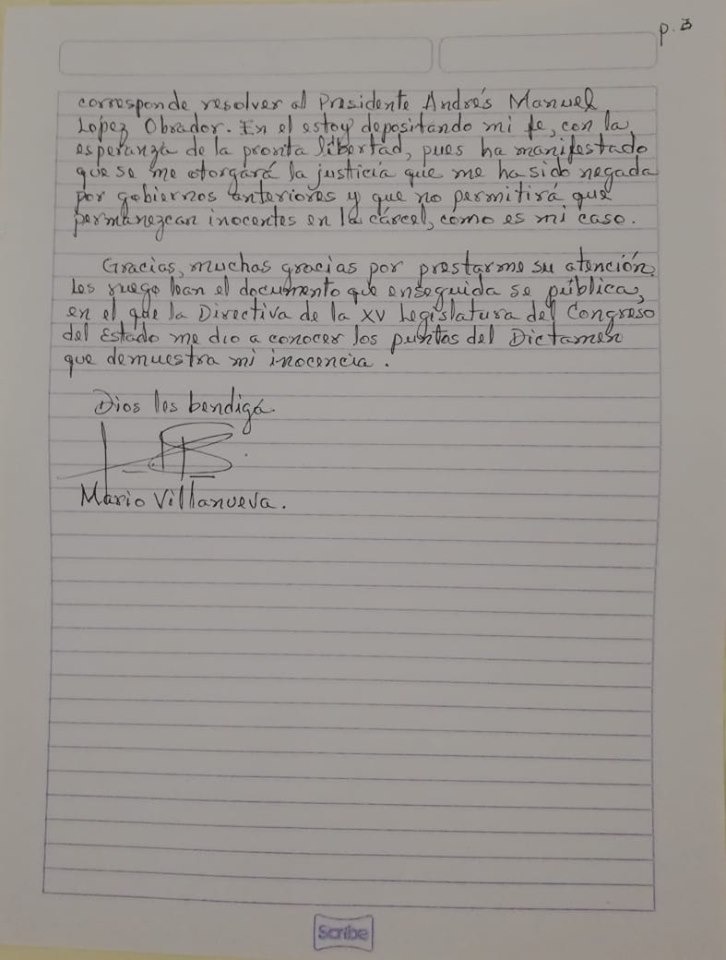 p. 3
corresponde resolver al Presidente Andrés Manuel
Lopez Obrador. En el estoy depositando mi fe, con la
esperanza de la pronta libertad, pues ha manifestado
que se me otorgará la justicia que me ha sido negada
por gobiernos anteriores y que no permitirá que
permanezcan inocentes en la cárcel, como es mi caso.
Gracias, muchas gracias por prestarme su atención,
les ruego lean el documento que enseguida se pública,
en el que la Directiva de la XV Legislatura del Congreso
del Estado me dio a conocer los puntos del Dictamen
que demuestra mi inocencia.
Dios los bendiga.
Mario Villanueva.
Scribe